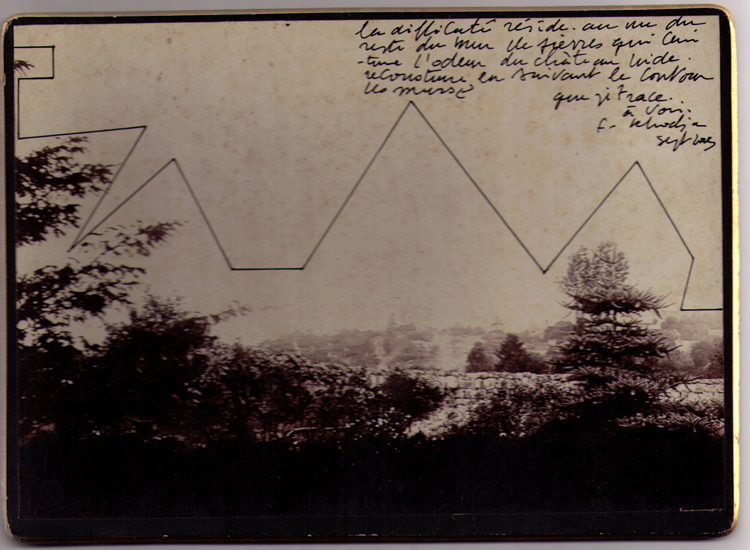 la difficulté réside. au vu du
reste du mur de pierres qui cein
-ture l'odeur du château vide.
reconstruire en suivant le contour
que je trace.
à voir.
f.
sept